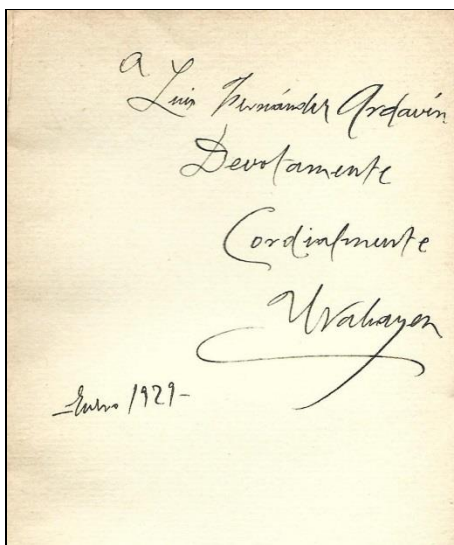 A
Luis Fernández Ardavín
Devotamente
Cordialmente
Urabayen
-Enero 1929-